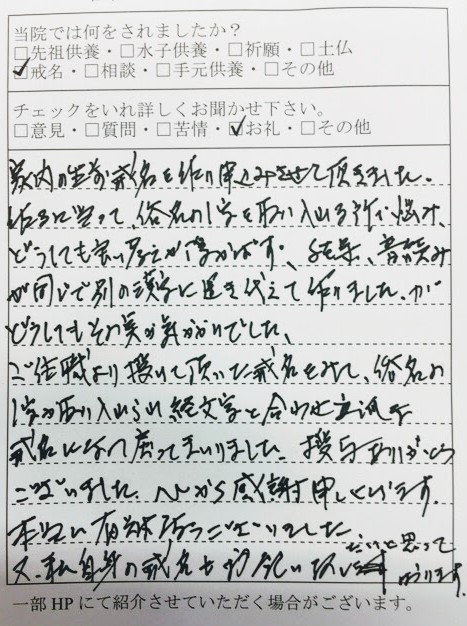 当院では何をされましたか？
□先祖供養・□水子供養・□祈願・□土仏
☑戒名・□相談・□手元供養・□その他
チェックをいれ詳しくお聞かせ下さい。
□意見・□質問・□苦情・☑お礼・□その他
家内の生前戒名を作り申込みさせて頂きました。
作るに当って、俗名の1字を取り入れる許に悩み、
どうしても良い考えが浮かばず、結果、音読み
が同じで別の漢字に置き代えて作りました。が
どうしてもその実が気がかりでした、
ご住職より授けて頂いた戒名をみて、俗名の
1字が取り入れられ経文字と合わせ立派な
戒名になって戻ってまいりました。授与ありがとう
ございました。心から感謝申し上げます。
本当に有難うございました
又、私自身の戒名もお願い
たいと思って
おります。
一部HPにて紹介させていただく場合がございます。